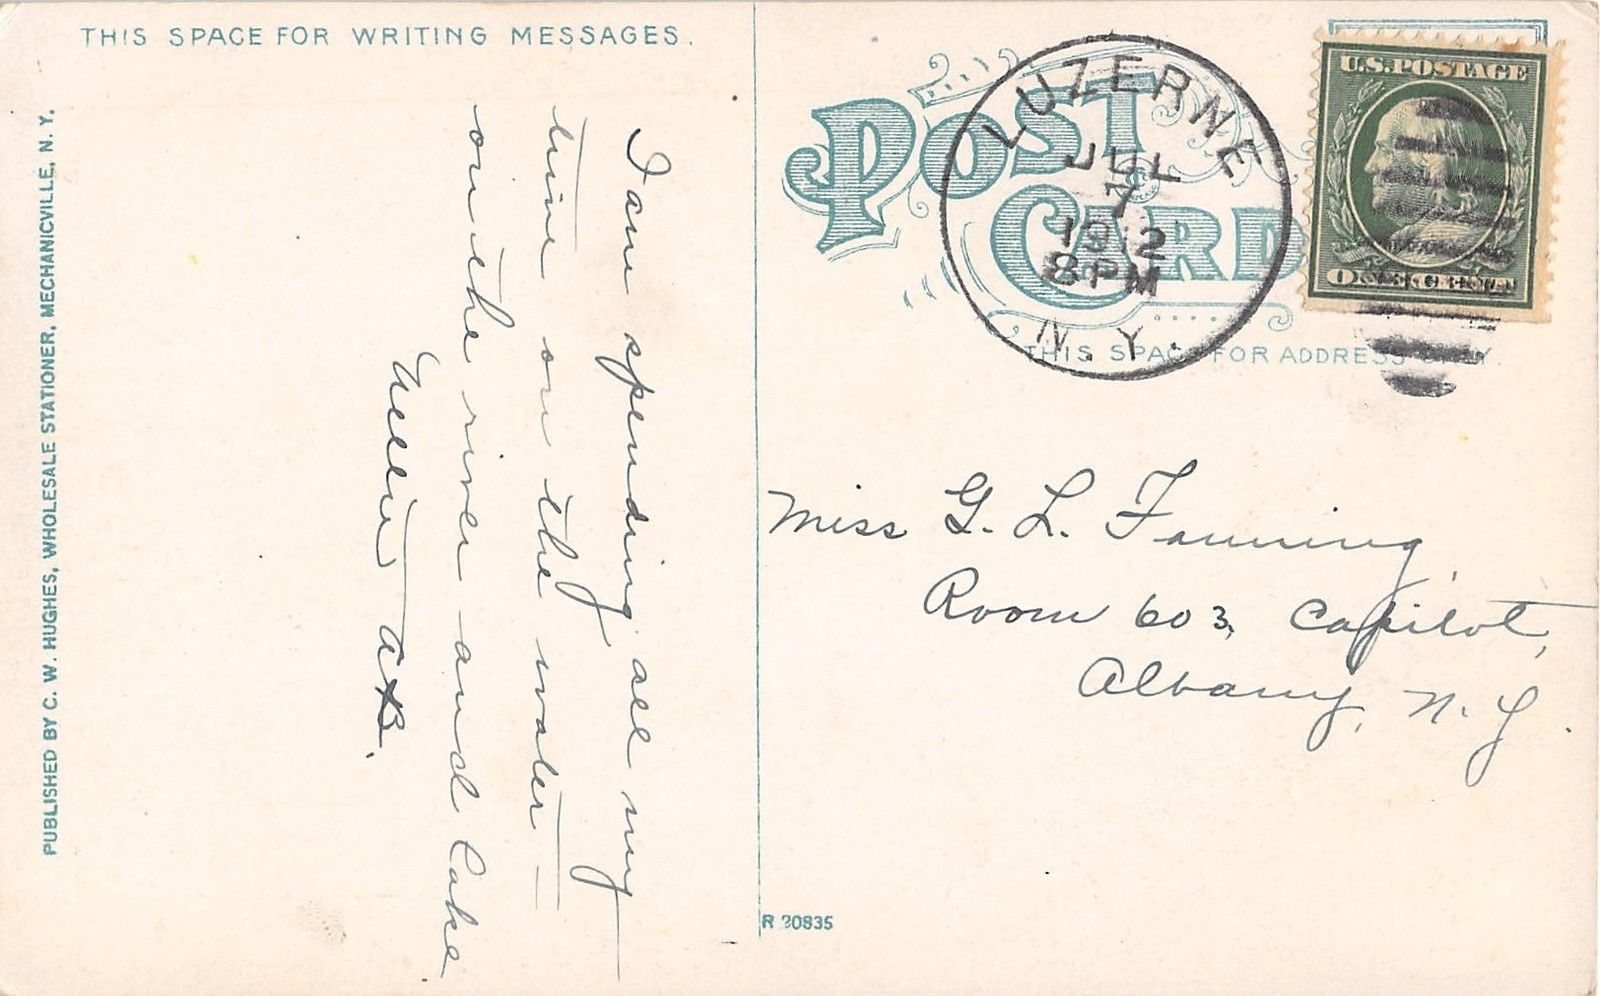 THIS SPACE FOR WRITING MESSAGES.
PUBLISHED BY C. W. HUGHES, WHOLESALE STATIONER, MECHANICVILLE, N. Y.
I am spending all my
time on the water—
on the river and Lake.
Nellie A. B.
POST CARD
LUZERNE
JUL
7
1912
8 PM
N. Y.
U.S. POSTAGE
THIS SPACE FOR ADDRESS ONLY.
Miss G. L. Fanning,
Room 603, Capitol,
Albany, N. Y.
R 20835